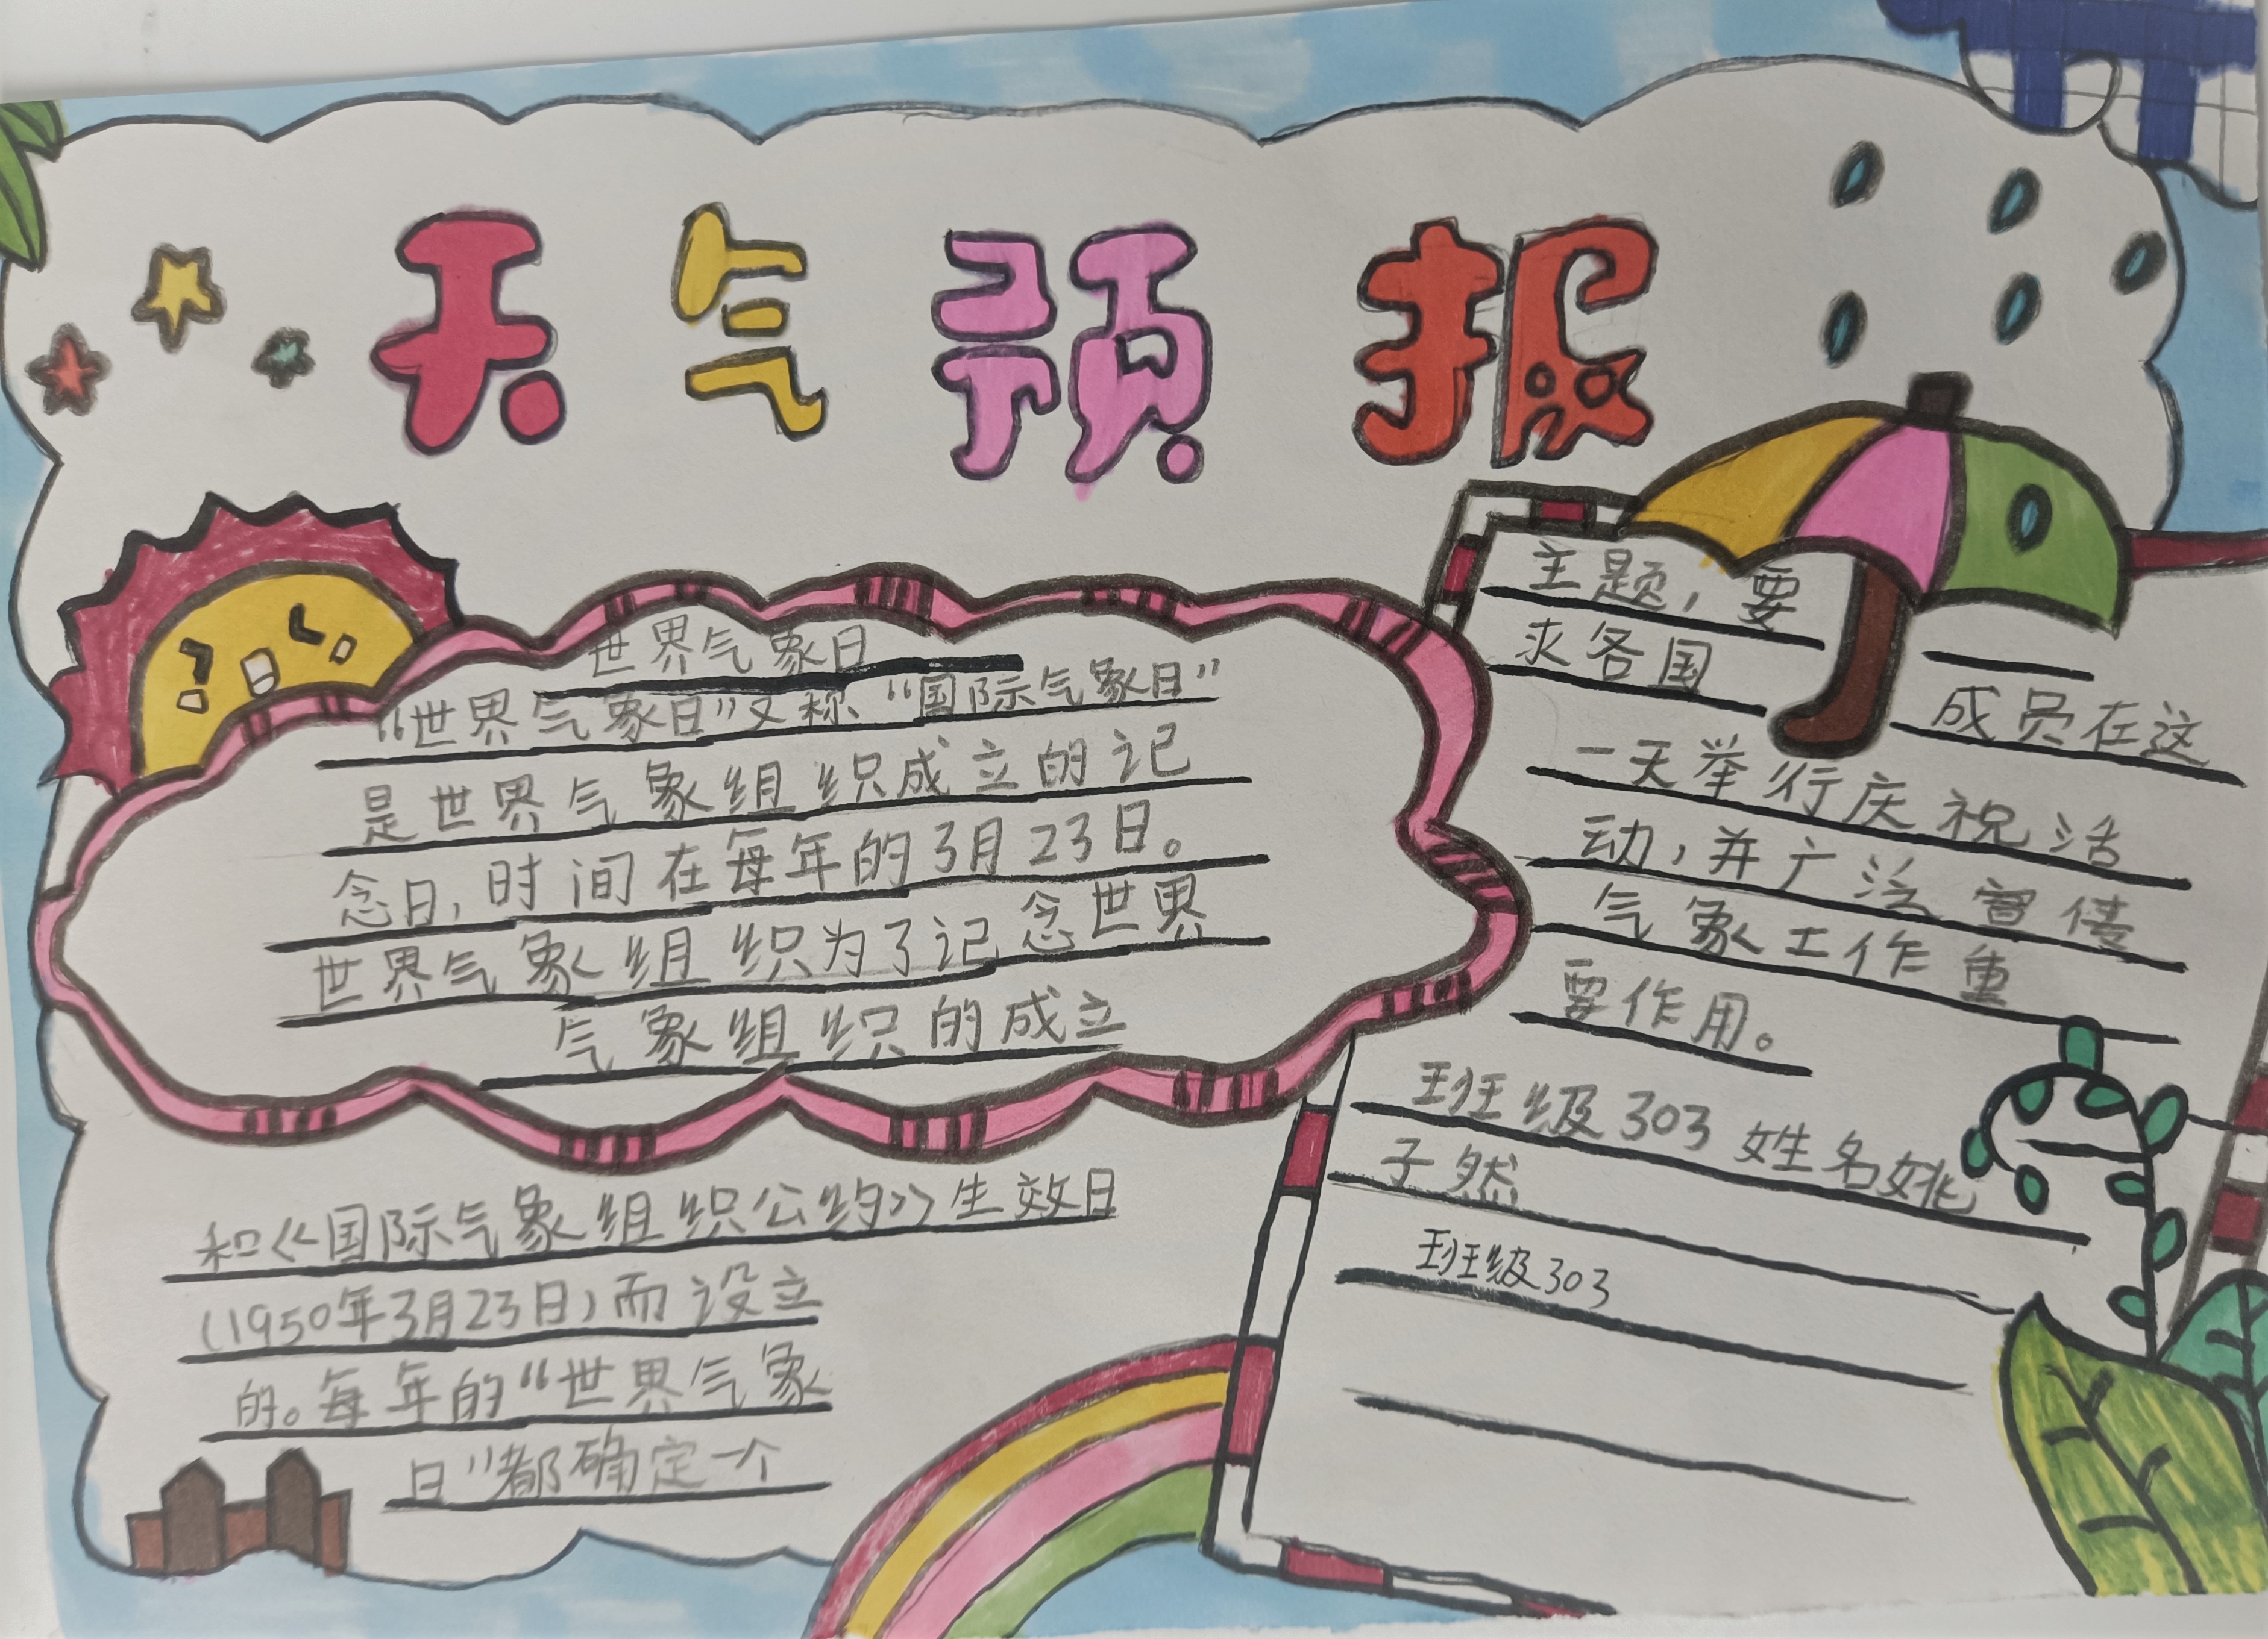 天气预报
世界气象日
“世界气象日”又称“国际气象日”
是世界气象组织成立的记
念日,时间在每年的3月23日。
世界气象组织为了记念世界
气象组织的成立
和《国际气象组织公约》生效日
(1950年3月23日)而设立
的。每年的“世界气象
日”都确定一个
主题,要
求各国
成员在这
一天举行庆祝活
动,并广泛宣传
气象工作重
要作用。
班级303姓名姚
子然
班级303